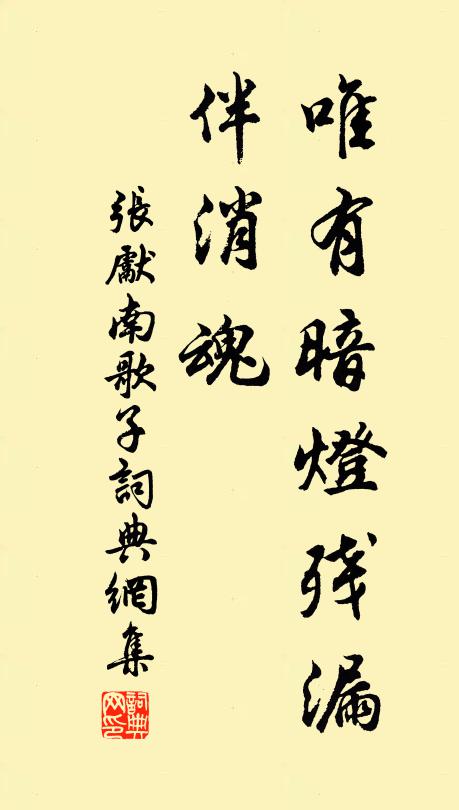 唯有暗燈残漏
伴消魂
張獻南歌子詞典網集
詞典
网印